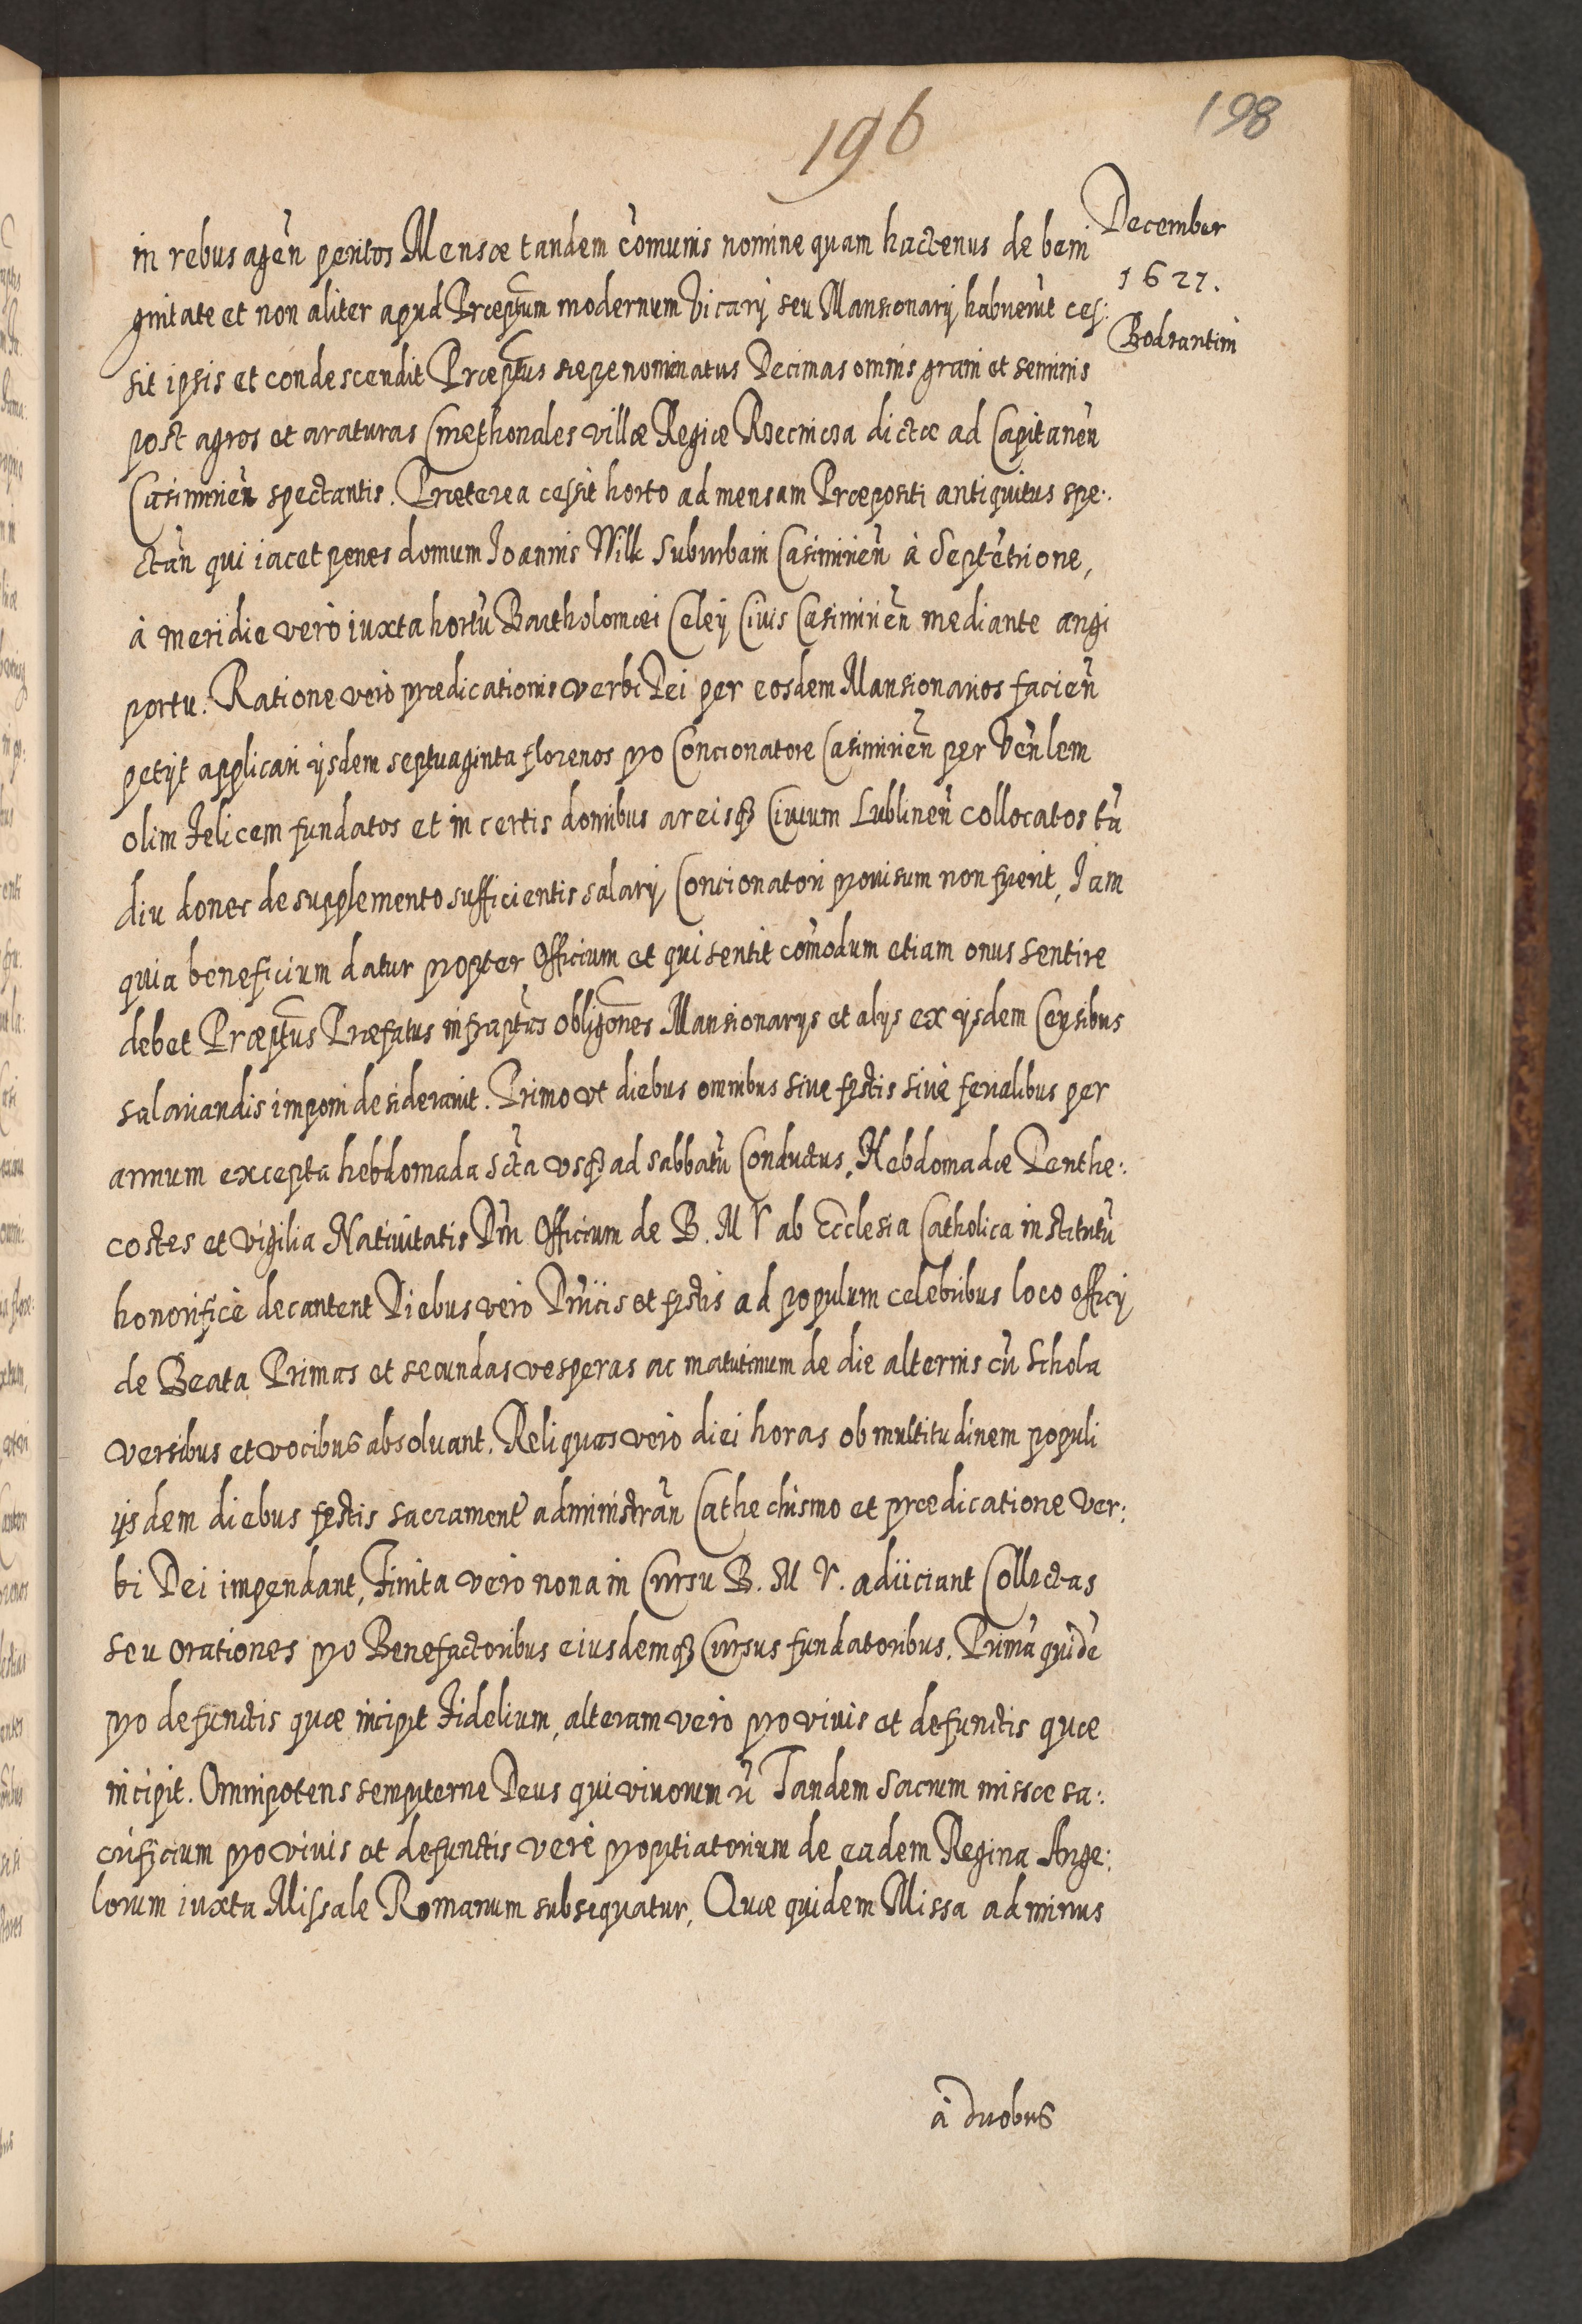 196
198
December
1621.
Bodzantini
in rebus agen̄ peritos Mensæ tandem cōmunis nomine quam hactenus de beni
gnitate et non aliter apud Præptum modernum Vicarij seu Mansionarij habuerūt ces:
sit ipsis et condescendit Præptus sæpenominatus Decimas omnis grani et seminis
post agros et araturas Cmethonales villæ Regiæ Rzeczicza dictæ ad Capitaneū
Casimirien̄ spectantis. Præterea cessit horto ad mensam Præpositi antiquitus spe:
ctān qui iacet penes domum Ioannis Wilk Suburbani Casimirien̄ à Septētrione,
à meridie verò iuxta hortū Bartholomæi Celey Civis Casimirien̄ mediante angi
portu. Ratione verò prædicationis verbi Dei per eosdem Mansionarios facien̄
petijt applicari ijsdem septuaginta florenos pro Concionatore Casimirien̄ per Ven̄lem
olim Felicem fundatos et in certis domibus areisq3 Civium Lublinen̄ collocatos tā
diu donec de supplemento sufficientis salarij Concionatori prouisum non fuerit, Iam
quia beneficium datur propter Officium et qui sentit cōmodum etiam onus sentire
debet Præptus Præfatus infraptas obligōnes Mansionarijs et alijs ex ijsdem Censibus
salariandis imponi desiderauit. Primo vt diebus omnibus siue festis siue ferialibus per
annum excepta hebdomada Sctā vsq3 ad sabbatū Conductus, Hebdomadæ Penthe:
costes et Vigilia Natiuitatis Dn̄i Officium de B. M V ab Ecclesia Catholica institutū
honorificè decantent Diebus verò Dn̄icis et festis ad populum celebribus loco officij
de Beata Primas et secundas vesperas ac matutinum de die alternis cū Schola
versibus et vocibus absoluant. Reliquas verò diei horas ob multitudinem populi
ijsdem diebus festis sacrament̄ administrān Cathechismo et prædicatione Ver:
bi Dei impendant, Finita verò nona in Cursu B. M V. adijciant Collectas
seu orationes pro Benefactoribus eiusdemq3 Cursus fundatoribus. Primā quidē
pro defunctis quæ incipit Fidelium, alteram verò pro viuis et defunctis quæ
incipit. Omnipotens sempiterne Deus qui viuorum Tandem Sacrum missæ sa:
crificium pro viuis et defunctis verè propitiatorium de eadem Regina Ange:
lorum iuxta Missale Romanum subsequatur, Quæ quidem Missa ad minus
à duobus